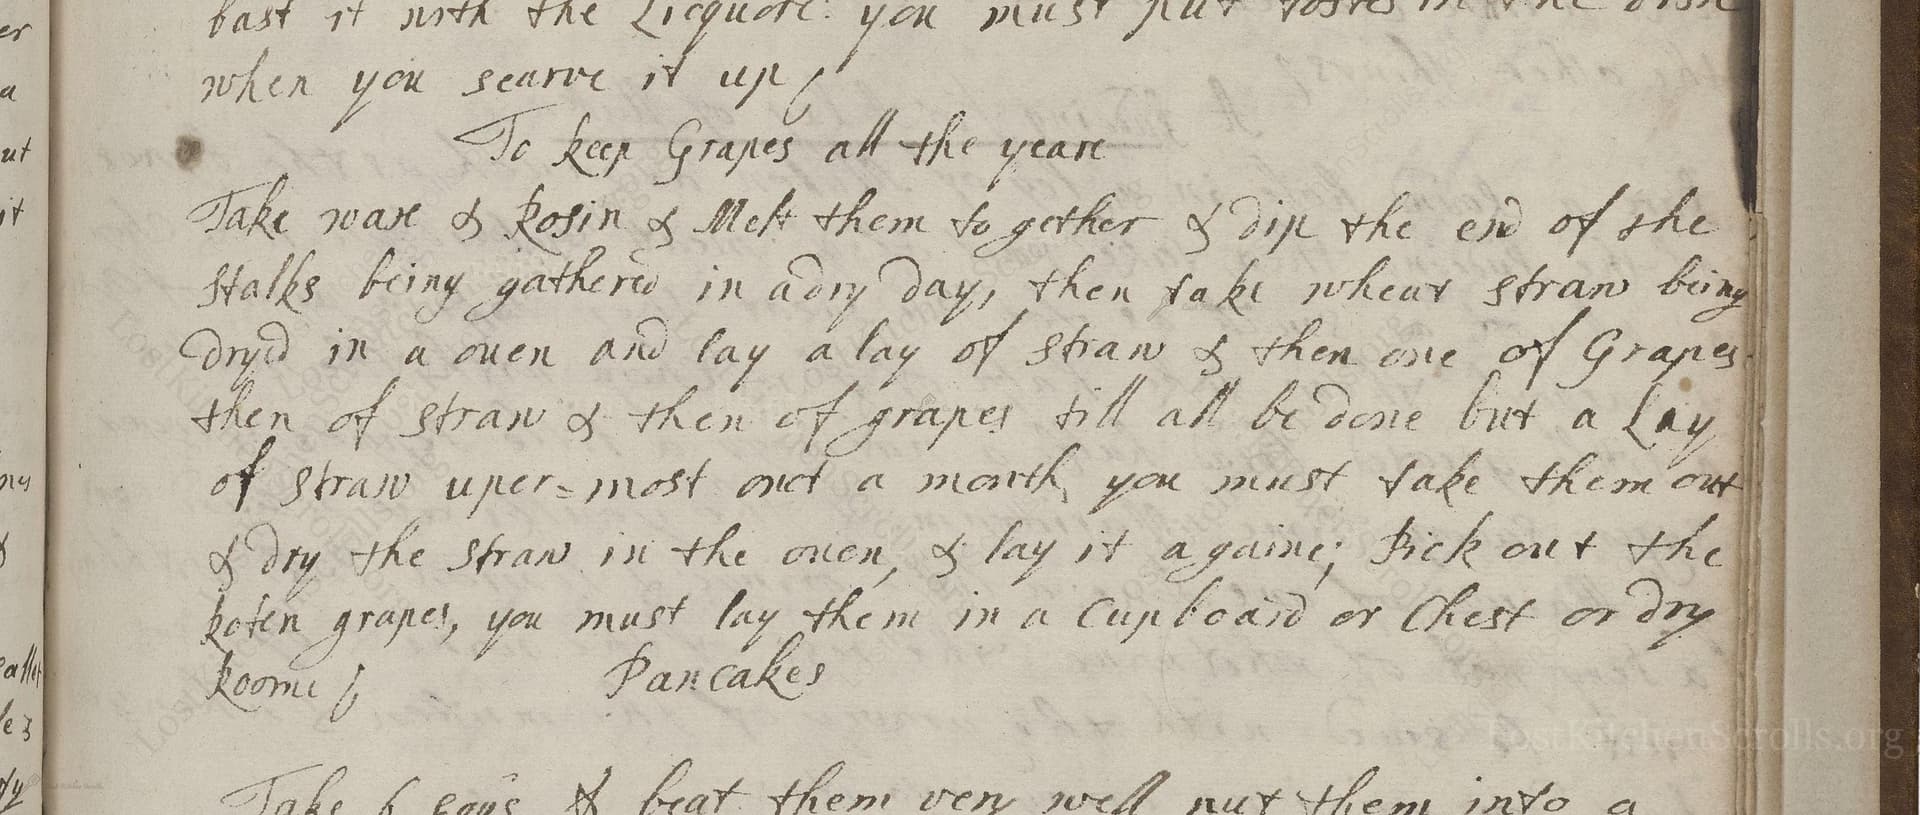 bast it with the Licquore: you must put tostes in the dish
when you searve it up
To keep Grapes all the yeare
Take waxe & Rosin & Melt them to gether & dip the end of the
stalks being gathered in a dry day, then take wheat straw being
dryed in a ouen and lay a lay of straw & then one of Grapes
then of straw & then of grapes till all be done but a Lay
of straw uper=most onct a month, you must take them out
& dry the straw in the ouen, & lay it againe; Pick out the
Roten grapes, you must lay them in a Cupboard or Chest or dry
Roome
Pancakes
Take 6 eggs & beat them very well put them into a
LostKitchenScrolls.org